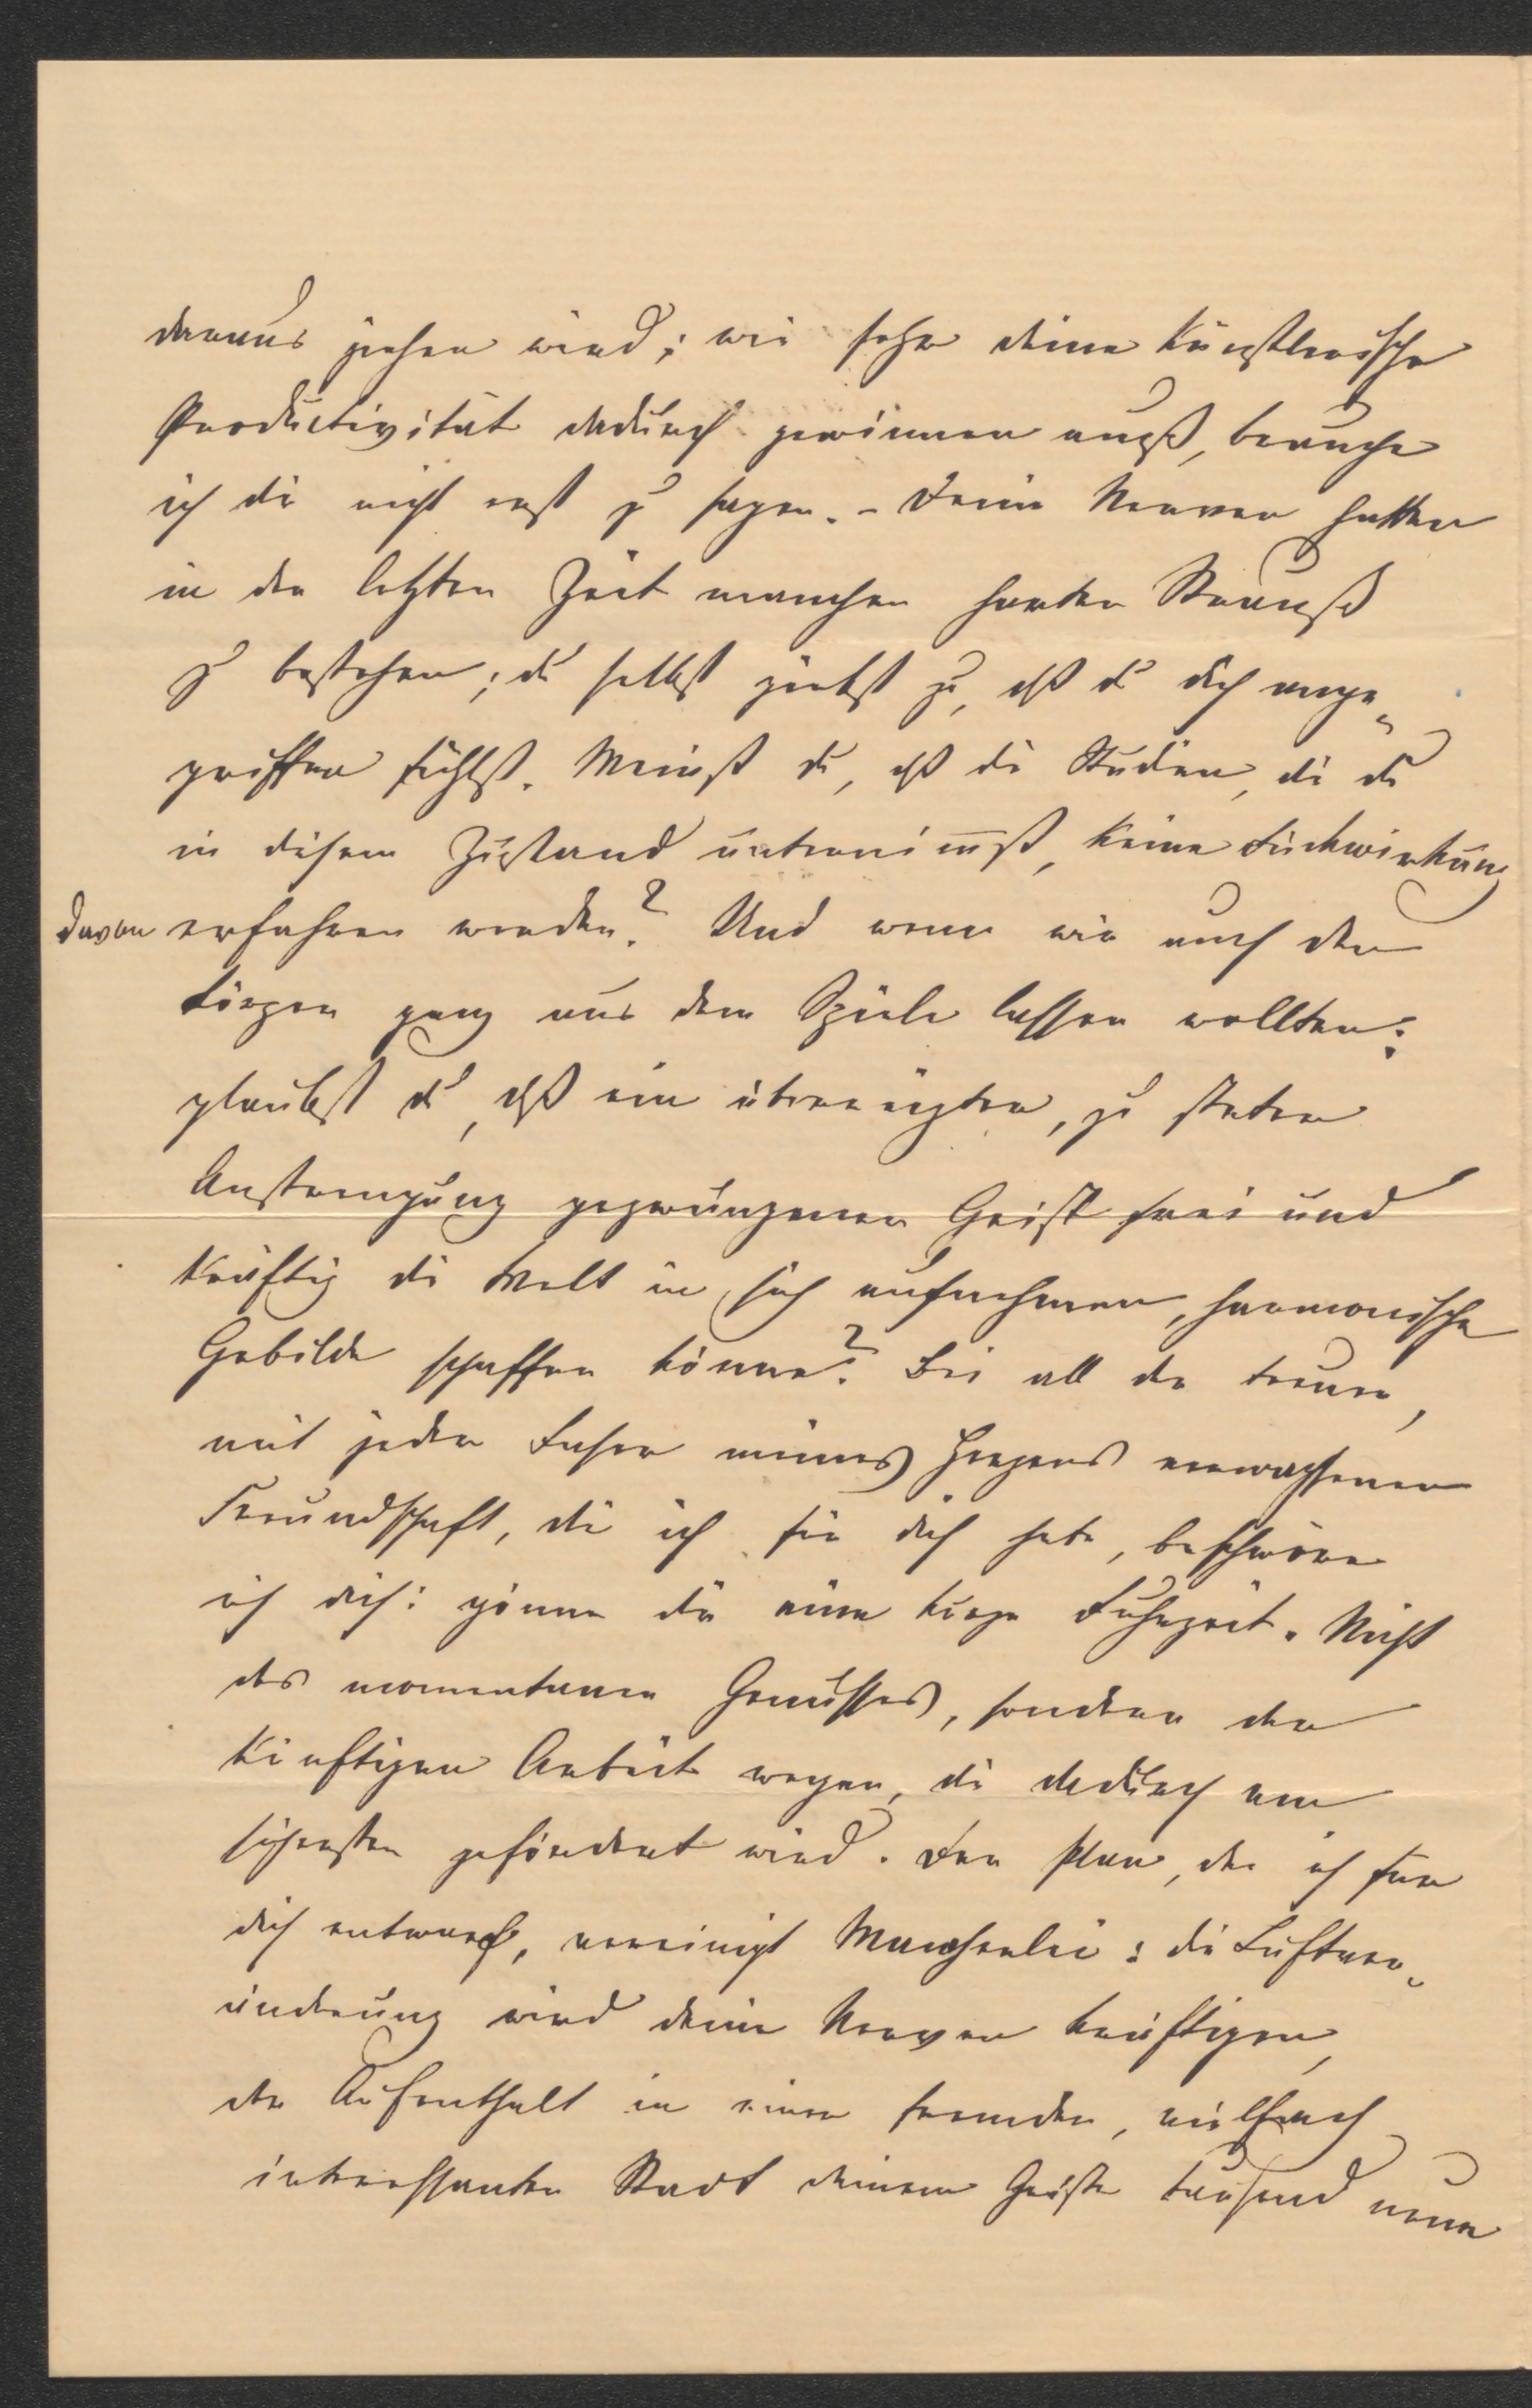 daraus ziehen wird; wie sehr deine künstlerische
Productivität dadurch gewinnen muß, brauche
ich dir nicht erst zu sagen. - Deine Nerven hatten
in der letzten Zeit manchen harten Strauß
zu bestehen; du selbst giebst zu, dß du dich ange„
griffen fühlst. Meinst du, dß die Studien, die du
in diesem Zustand unternim̅st, keine Rückwirkung
davon erfahren werden? Und wenn wir auch den
Körper ganz aus dem Spiele lassen wollten:
glaubst du, dß ein überreizter, zu steter
Anstrengung gezwungener Geist frei und
kräftig die Welt in sich aufnehmen, harmonische
Gebilde schaffen könne? Bei all der treuen,
mit jeder Faser meines Herzens verwachsenen
Freundschaft, die ich für dich habe, beschwöre
ich dich: gönne dir eine kurze Ruhezeit. Nicht
des momentanen Genusses, sondern der
künftigen Arbeit wegen, die dadurch am
sichersten gefördert wird. Der Plan, den ich für
dich entwarf, vereinigt Mancherlei: die Luftver„
änderung wird deine Nerven kräftigen,
der Aufenthalt in einer fremden, vielfach
interessanten Stadt deinem Geiste tausend neue